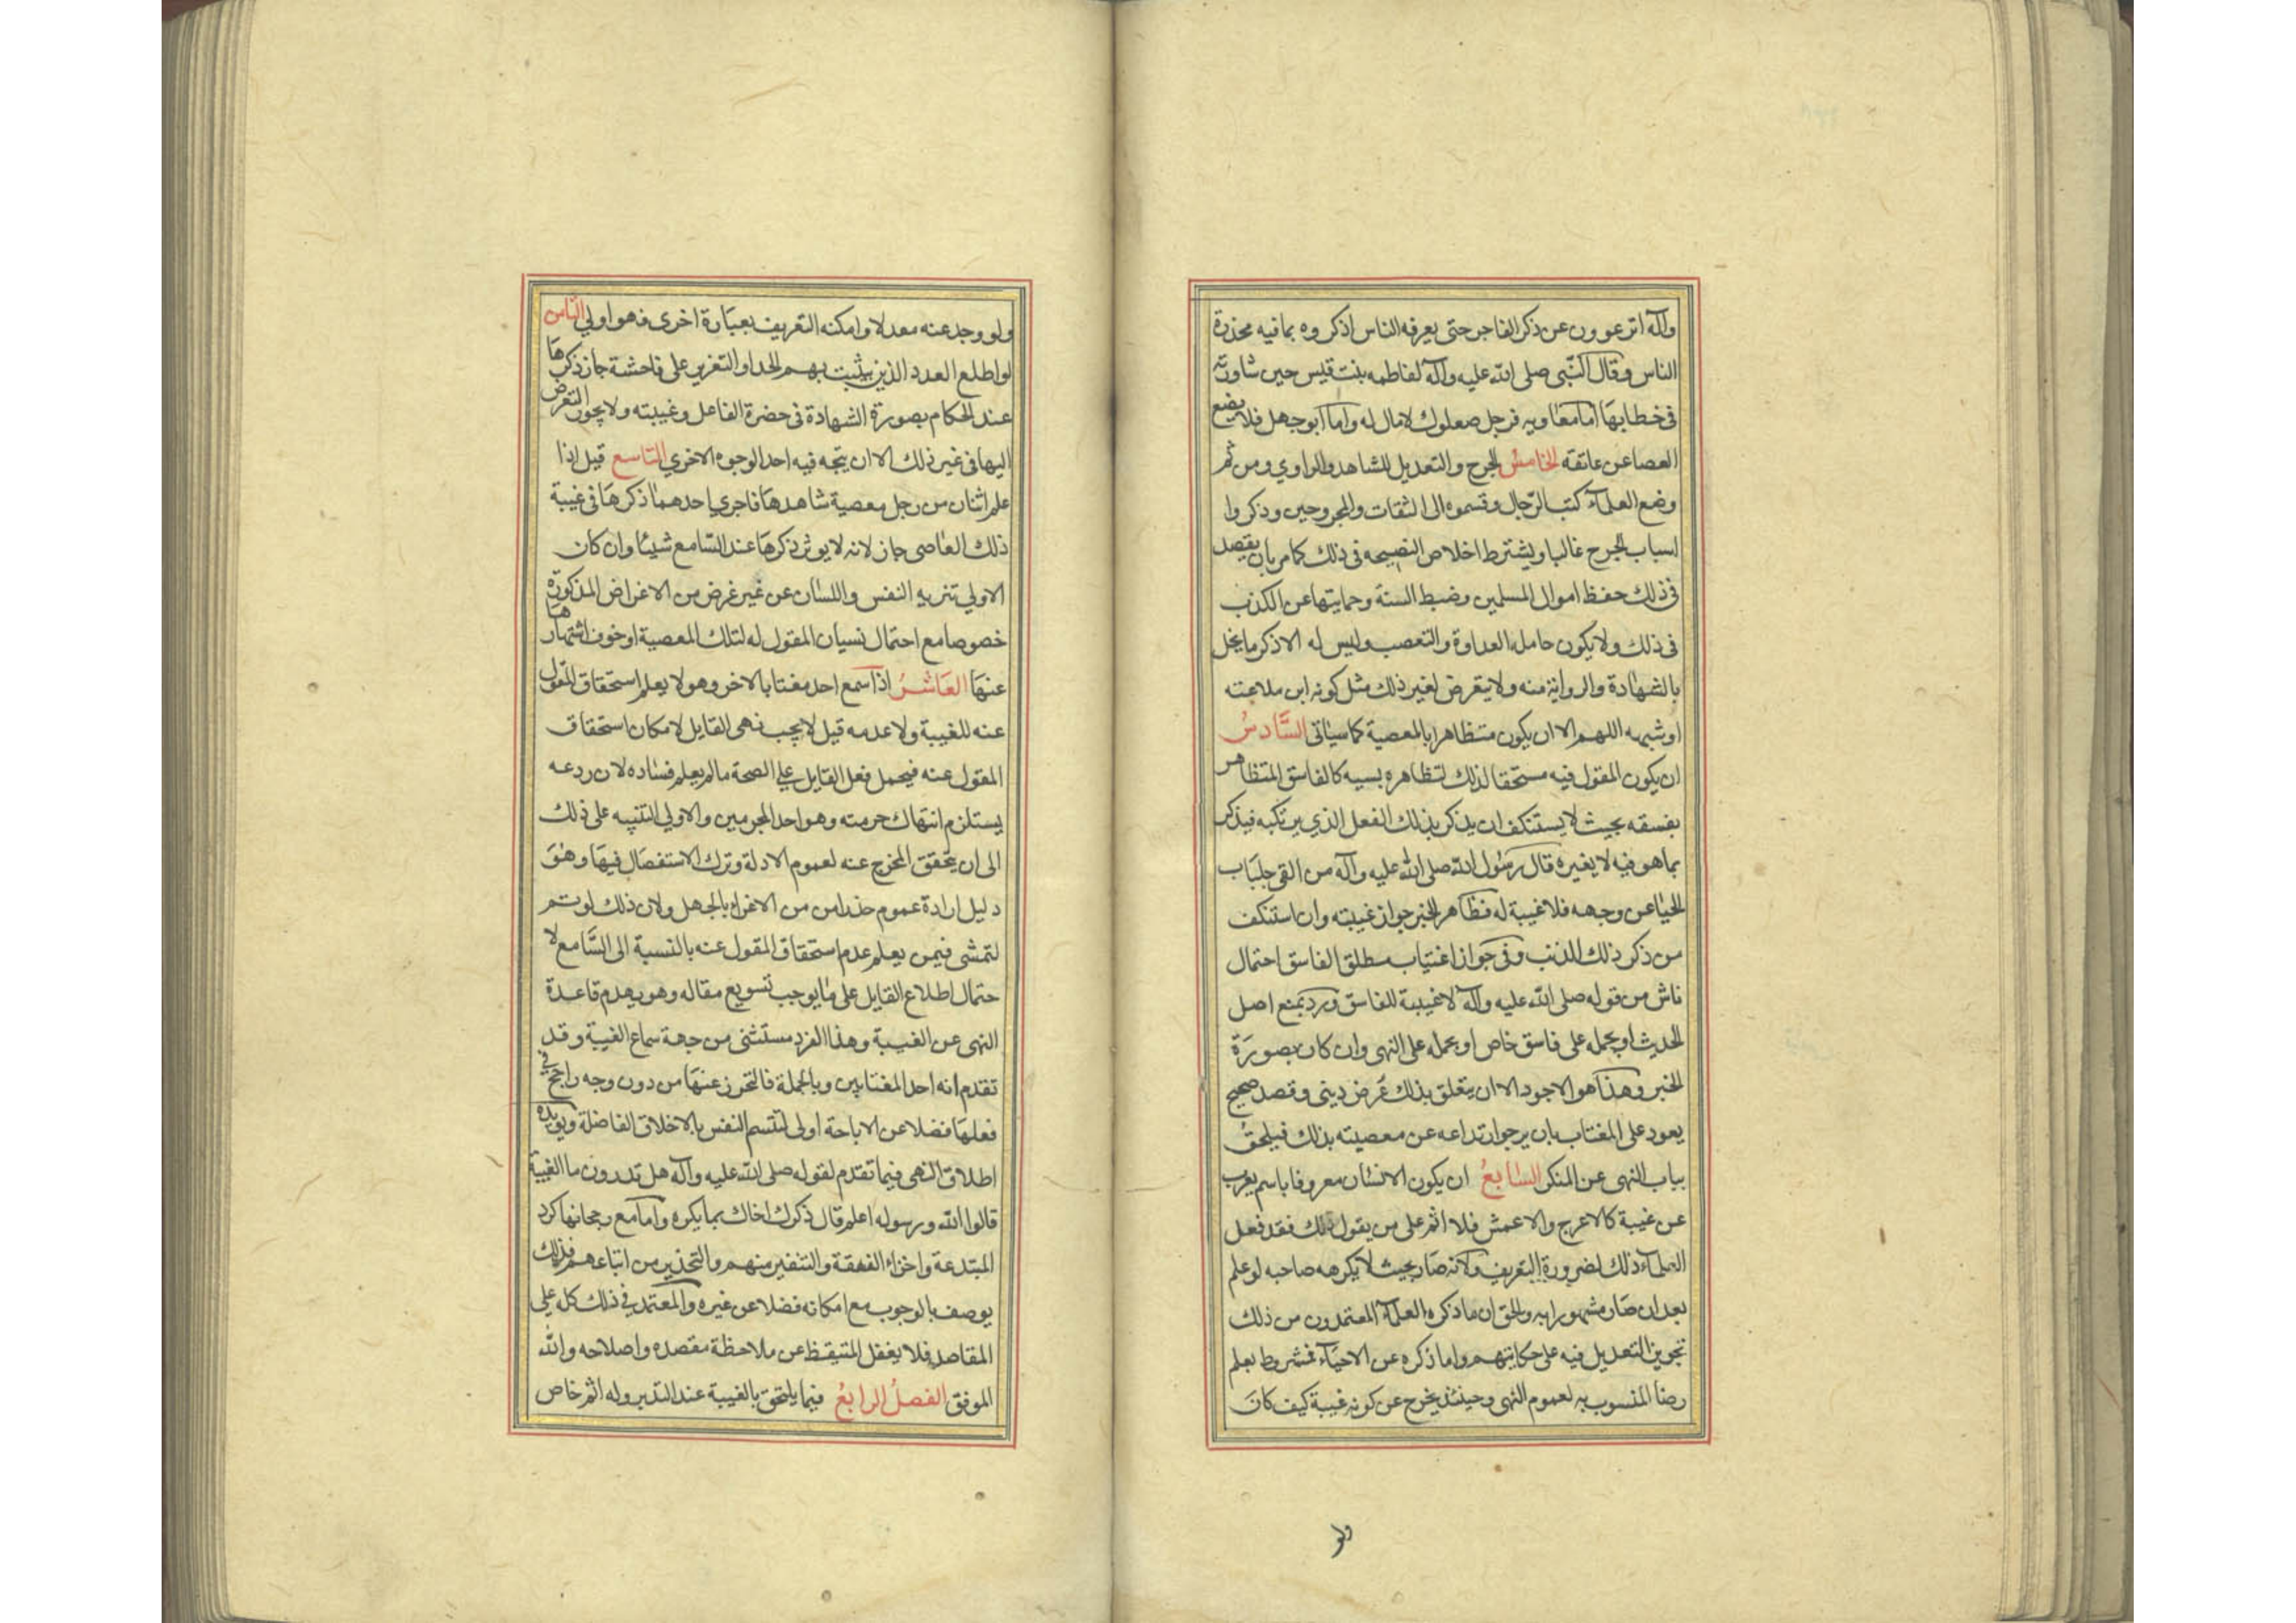 وآله اترعوون عن ذكر الفاجر حتى يعرفه الناس اذكروه بما فيه محذرة
الناس وقال النبي صلى الله عليه وآله لفاطمه بنت قيس حين شاورته
في خطابها اما معاويه فرجل صعلوك لا مال له واما ابو جهل فلا يضع
العصا عن عاتقه الخامس الجرح والتعديل للشاهد والراوي ومن ثم
وضع العلماء كتب الرجال وقسموه الى الثقات والمجروحين وذكروا
اسباب الجرح غالبا ويشترط اخلاص النصيحه في ذلك كما مر بان يقصد
في ذلك حفظ اموال المسلمين وضبط السنة وحمايتها عن الكذب
في ذلك ولا يكون حامله العداوة والتعصب وليس له الا ذكر ما يخل
بالشهادة والرواية منه ولا يتعرض لغير ذلك مثل كونه ابن ملاعنه
او شبهه اللهم الا ان يكون متظاهرا بالمعصية كما سياتى السادس
ان يكون المقول فيه مستحقا لذلك لتظاهره بسببه كالفاسق المتظاهر
بفسقه بحيث لا يستنكف ان يذكر بذلك الفعل الذي يرتكبه فيذكر
بما هو فيه لا بغيره قال رسول الله صلى الله عليه وآله من القى جلباب
الحيا عن وجهه فلا غيبة له فظاهر الخبر جواز غيبته وان استنكف
من ذكر ذلك الذنب وفي جواز اغتياب مطلق الفاسق احتمال
ناش من قوله صلى الله عليه وآله لا غيبة للفاسق ورد بمنع اصل
الحديث او بحمله على فاسق خاص او بحمله على النهى وان كان بصورة
الخبر وهذا هو الاجود الا ان يتعلق بذلك غرض دينى وقصد صحيح
يعود على المغتاب بان يرجو ارتداعه عن معصيته بذلك فيلحق
بباب النهى عن المنكر السابع ان يكون الانسان معروفا باسم يعرب
عن غيبة كالاعرج والاعمش فلا اثم على من يقول ذلك فقد فعل
العلماء ذلك لضرورة التعريف ولانه صار بحيث لا يكرهه صاحبه لو علم
بعد ان صار مشهورا به والحق ان ما ذكره العلماء المعتمدون من ذلك
تجوز التعديل فيه على حكايتهم واما ذكره عن الاحياء فمشروط بعلم
رضا المنسوب به لعموم النهى وحينئذ يخرج عن كونه غيبة كيف كان
ولو
ولو وجد عنه معدلا وامكنه التعريف بعبارة اخرى فهو اولى الثامن
لو اطلع العدد الذين يثبت بهم الحد او التعزير على فاحشة جاز ذكرها
عند الحكام بصورة الشهادة في حضرة الفاعل وغيبته ولا يجوز التعرض
اليها في غير ذلك الا ان يتجه فيه احد الوجوه الاخرى التاسع قيل اذا
علم اثنان من رجل معصية شاهدها فاجرى احدهما ذكرها في غيبة
ذلك العاصى جاز لانه لا يوثر ذكرها عند السامع شيئا وان كان
الاولى تنزيه النفس واللسان عن غير غرض من الاغراض المذكورة
خصوصا مع احتمال نسيان المقول له لتلك المعصية او خوف اشتهارها
عنها العاشر اذا سمع احد مغتابا لاخر وهو لا يعلم استحقاق المقول
عنه للغيبة ولا عدمه قيل لا يجب نهى القايل لامكان استحقاق
المقول عنه فيحمل فعل القايل على الصحة ما لم يعلم فساده لان ردعه
يستلزم انتهاك حرمته وهو احد المجرمين والاولى التنبيه على ذلك
الى ان يتحقق المخرج عنه لعموم الادلة وترك الاستفصال فيها وهو
دليل ارادة عموم حذرا من من الاغراء بالجهل ولان ذلك لو تم
لتمشى فيمن يعلم عدم استحقاق المقول عنه بالنسبة الى السامع لا
حتمال اطلاع القايل على ما يوجب تسويع مقاله وهو يهدم قاعدة
النهى عن الغيبة وهذا الفرد مستثنى من جهة سماع الغيبة وقد
تقدم انه احد المغتابين وبالجملة فالتحرز عنها من دون وجه راجح في
فعلها فضلا عن الاباحة اولى لتتسم النفس بالاخلاق الفاضلة ويويده
اطلاق النهى فيما تقدم لقوله صلى الله عليه وآله هل تدرون ما الغيبة
قالوا الله ورسوله اعلم قال ذكرك اخاك بما يكره واما مع رجحانها كرد
المبتدعة واخزاء الفسقة والتنفير منهم والتحذير من اتباعهم فذلك
يوصف بالوجوب مع امكانه فضلا عن غيره والمعتمد في ذلك كله على
المقاصد فلا يغفل المتيقظ عن ملاحظة مقصده واصلاحه والله
الموفق الفصل الرابع فيما يلتحق بالغيبة عند التدبر وله اثم خاص